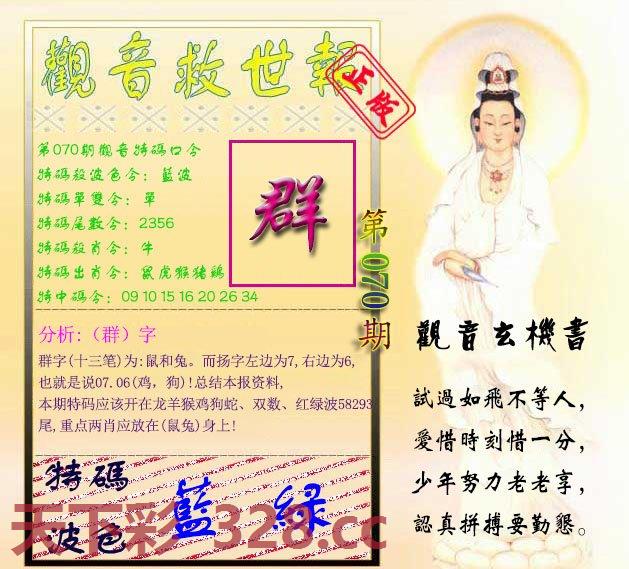 觀音救世報
正版
第070期觀音特碼口令
特碼殺波色令：藍波
特碼單雙令：單
特碼尾數令：2356
特碼殺肖令：牛
特碼出肖令：鼠虎猴猪鷄
特中碼令：09 10 15 16 20 26 34
群
第070期
分析:（群）字
群字(十三笔)为:鼠和兔。而扬字左边为7,右边为6,
也就是说07.06(鸡，狗)!总结本报资料,
本期特码应该开在龙羊猴鸡狗蛇、双数、红绿波58293
尾,重点两肖应放在(鼠兔)身上!
特碼
波色
藍 綠
天下彩 328.cc
觀音玄機書
試過如飛不等人，
愛惜時刻惜一分，
少年努力老老享，
認真拼搏要勤懇。